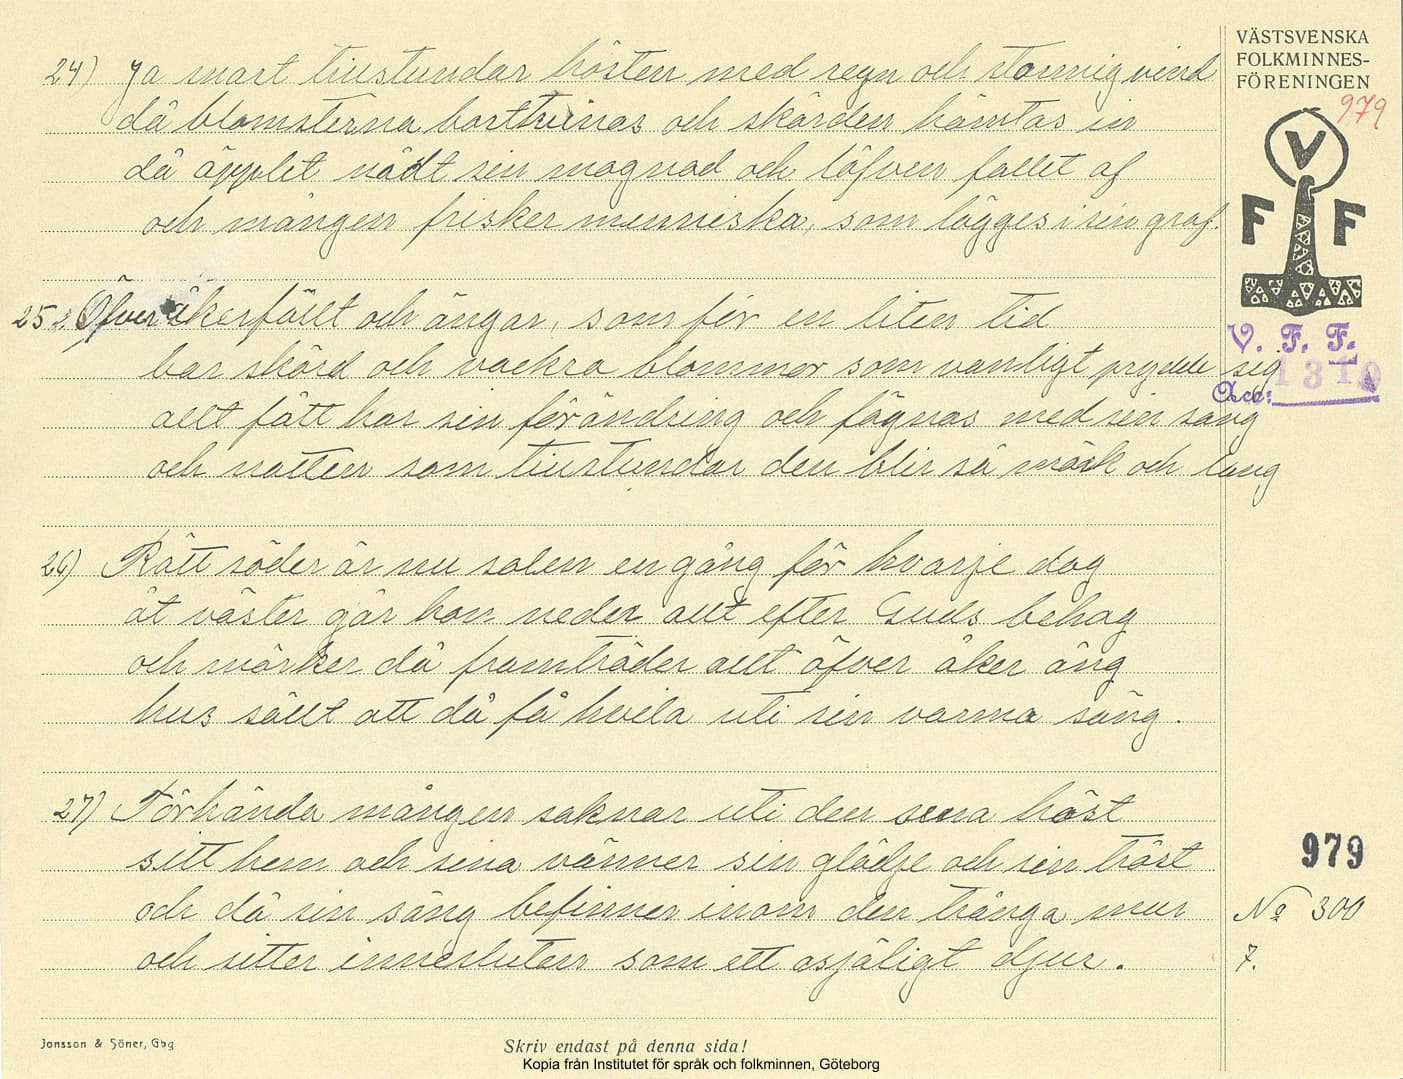 VÄSTSVENSKA
FOLKMINNES-
FÖRENINGEN
979
V
F F
V. F. F.
Acc: 1319
24) Ja snart tillstundar hösten med regn och stormig vind
då blomsterna borttvinas och skörden hämtas in
då äpplet nådt sin mognad och löfven fallet af
och mången frisker menniska, som lägges i sin graf.
25. Öfver åkerfällt och ängar, som för en liten tid
bar skörd och vackra blommor som vanligt prydde sig
allt fått har sin förändring och fåglnas med sin sång
och natten som tillstundar den blir så mörk och lång
26) Rätt söder är nu solen en gång för hvarje dag
åt väster går hon neder allt efter Guds behag
och mörker då framträder allt öfver åker äng
hus sällt att då få hvila uti sin varma säng.
27) Förhända mången saknar uti den sena höst
sitt hem och sina vänner sin glädje och sin tröst
och då sin säng befinner inom den trånga mur
och sitter innesluten som ett osjäligt djur.
979
No 300
7.
Jonsson & Söner, Gbg
Skriv endast på denna sida!
Kopia från Institutet för språk och folkminnen, Göteborg